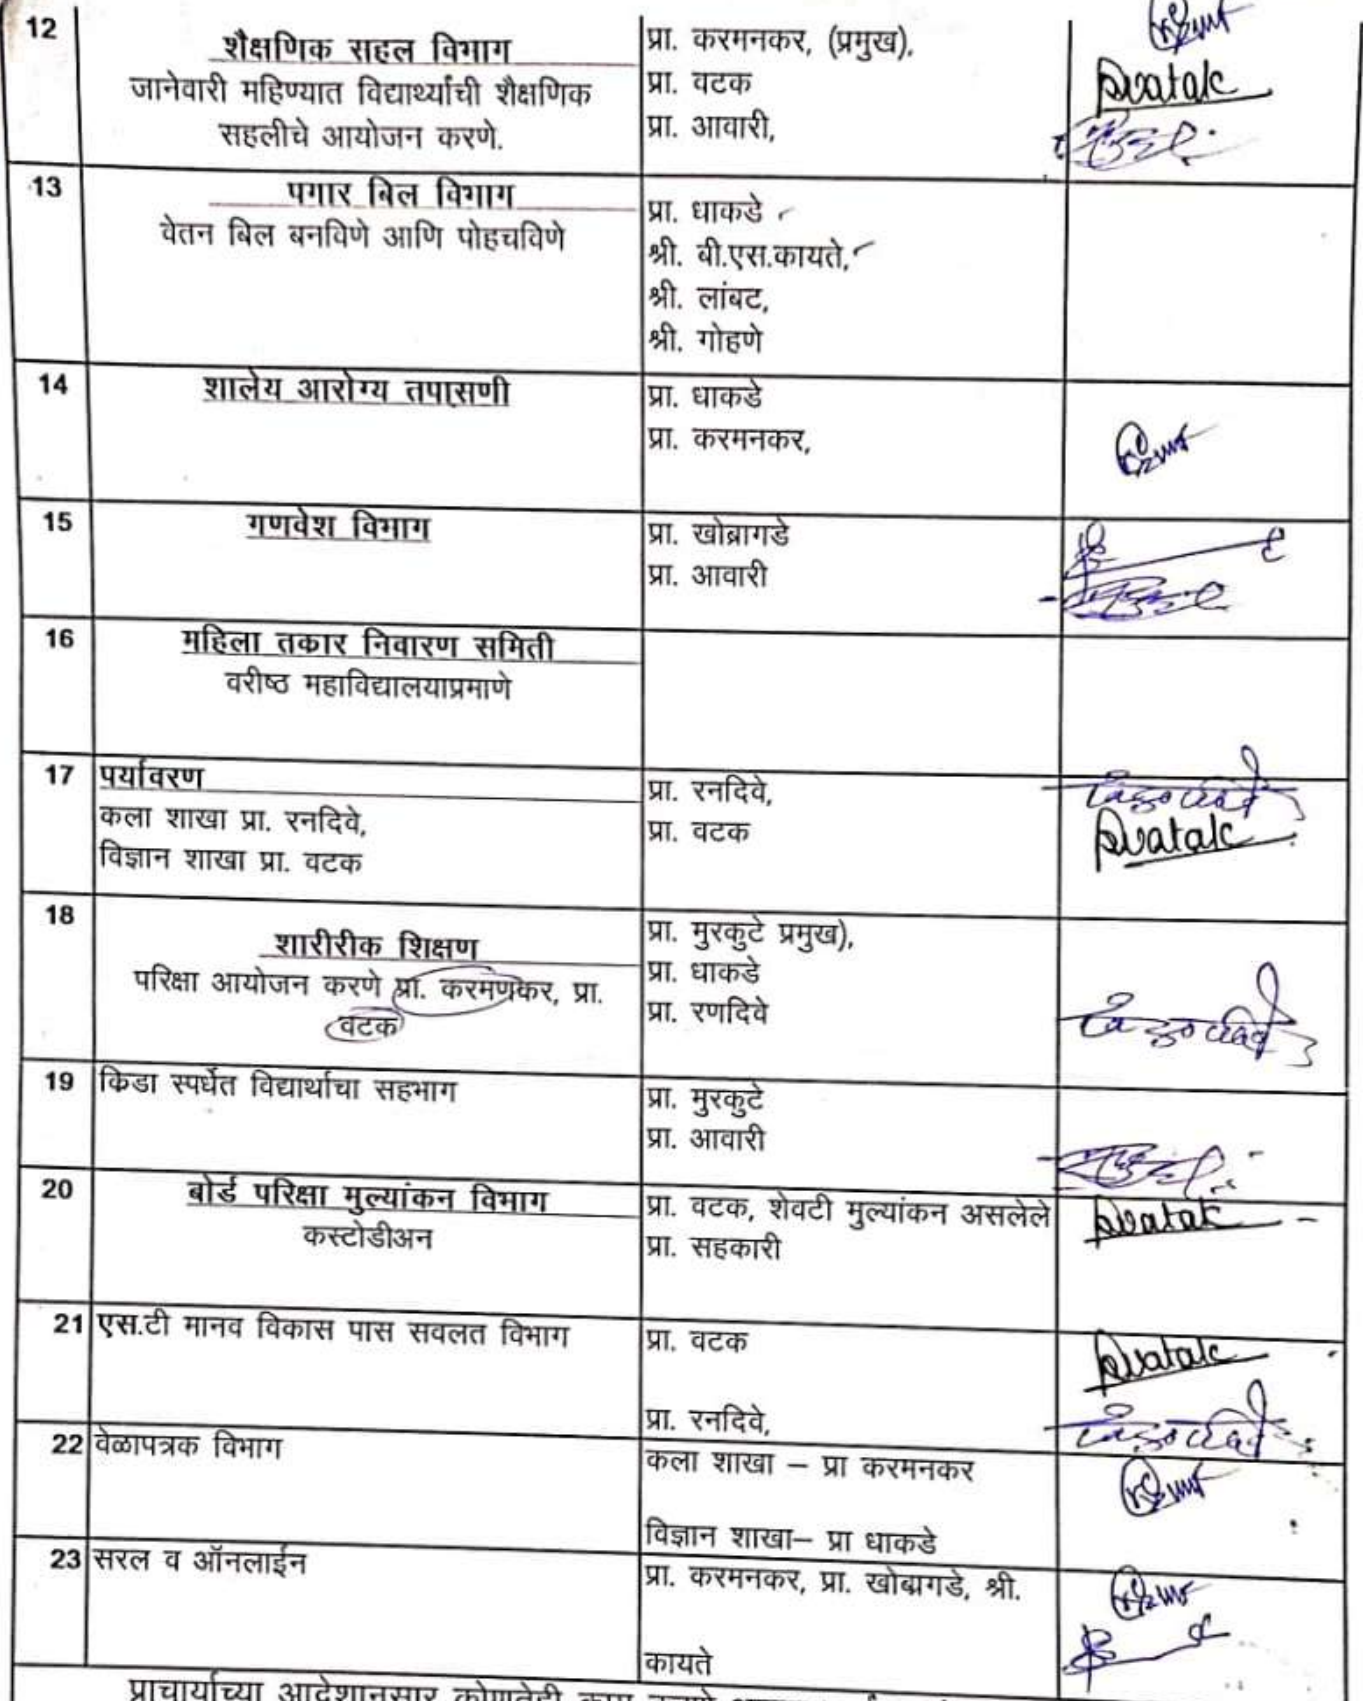 12
शैक्षणिक सहल विभाग
जानेवारी महिण्यात विद्यार्थ्यांची शैक्षणिक
सहलीचे आयोजन करणे.
प्रा. करमनकर, (प्रमुख),
प्रा. वटक
प्रा. आवारी,
Dvatak
13
पगार बिल विभाग
वेतन बिल बनविणे आणि पोहचविणे
प्रा. धाकडे
श्री. बी.एस.कायते,
श्री. लांबट,
श्री. गोहणे
14
शालेय आरोग्य तपासणी
प्रा. धाकडे
प्रा. करमनकर,
15
गणवेश विभाग
प्रा. खोब्रागडे
प्रा. आवारी
16
महिला तकार निवारण समिती
वरीष्ठ महाविद्यालयाप्रमाणे
17
पर्यावरण
कला शाखा प्रा. रनदिवे,
विज्ञान शाखा प्रा. वटक
प्रा. रनदिवे,
प्रा. वटक
Dvatak
18
शारीरीक शिक्षण
परिक्षा आयोजन करणे प्रा. करमणकर, प्रा.
वटक
प्रा. मुरकुटे प्रमुख),
प्रा. धाकडे
प्रा. रणदिवे
19
किडा स्पर्धेत विद्यार्थाचा सहभाग
प्रा. मुरकुटे
प्रा. आवारी
20
बोर्ड परिक्षा मुल्यांकन विभाग
कस्टोडीअन
प्रा. वटक, शेवटी मुल्यांकन असलेले
प्रा. सहकारी
Dvatak
21
एस.टी मानव विकास पास सवलत विभाग
प्रा. वटक
प्रा. रनदिवे,
Dvatak
22
वेळापत्रक विभाग
कला शाखा – प्रा करमनकर
विज्ञान शाखा– प्रा धाकडे
23
सरल व ऑनलाईन
प्रा. करमनकर, प्रा. खोब्रागडे, श्री.
कायते
प्राचार्याच्या आदेशानुसार कोणतेही काम